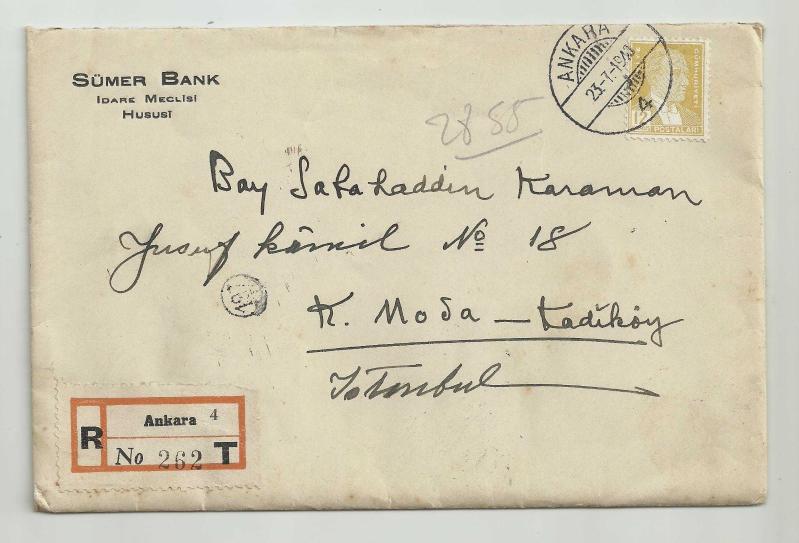 SÜMER BANK
IDARE MECLİSİ
HUSUSİ
ANKARA
23-7-19
4
CUMHURİYETİ
POSTALARI
2855
Bay Sabahaddin Karaman
Yusuf kâmil No 18
K. Moda - Kadıköy
Istanbul
Ankara 4
R No 262 T